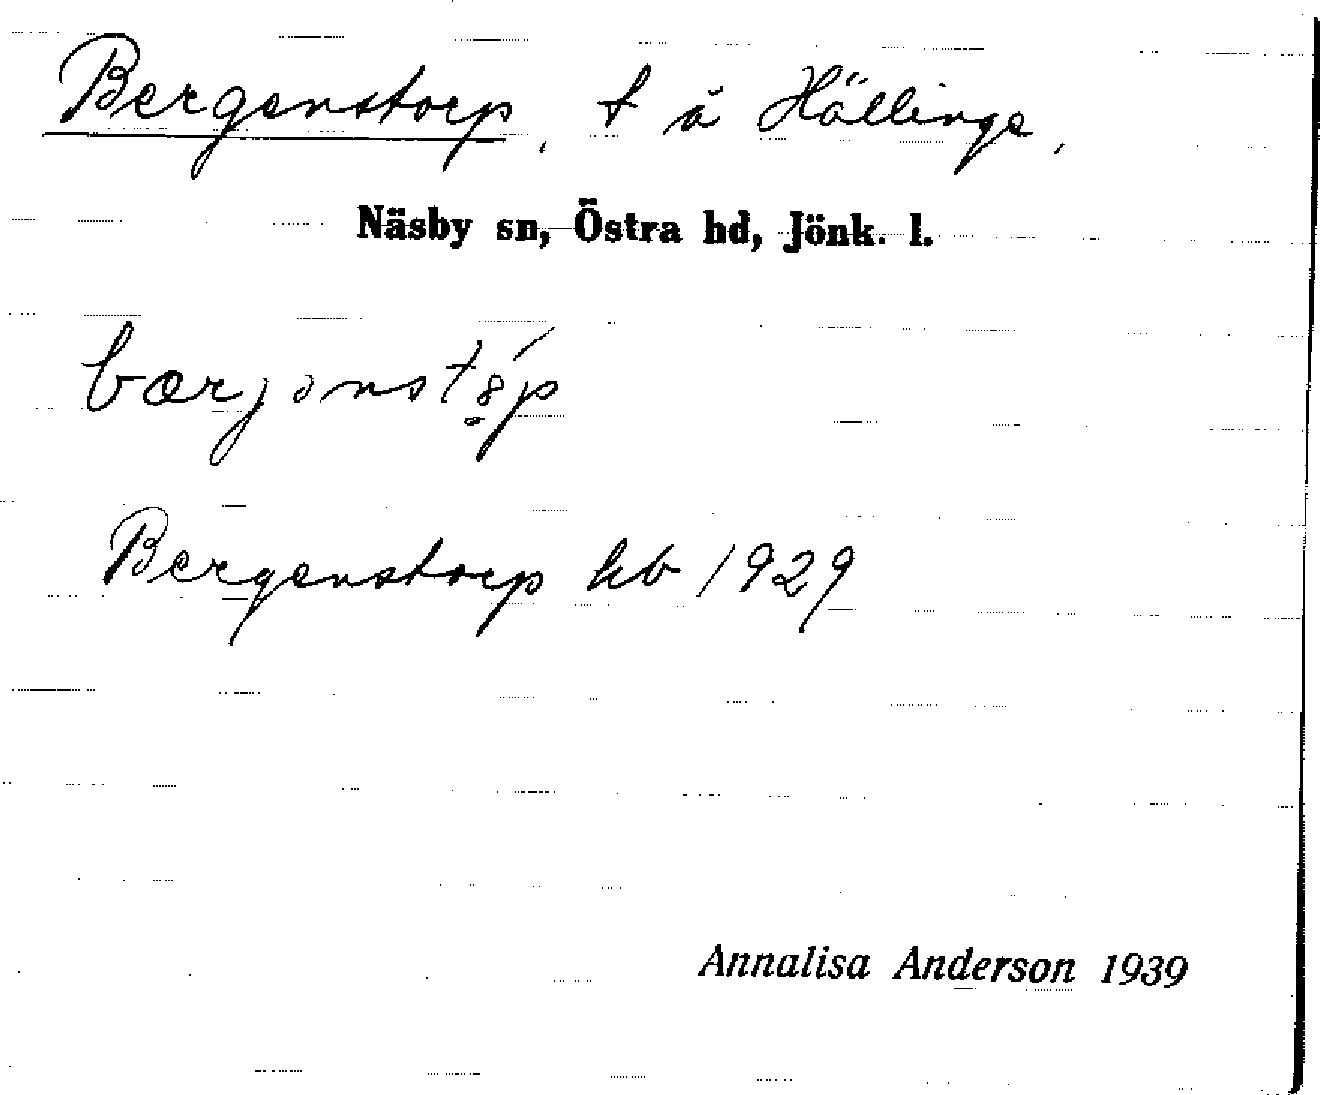 Bergenstorp, t å Hällinge,
Näsby sn, Östra hd, Jönk. l.
Bergenstorp hb 1929
Annalisa Anderson 1939